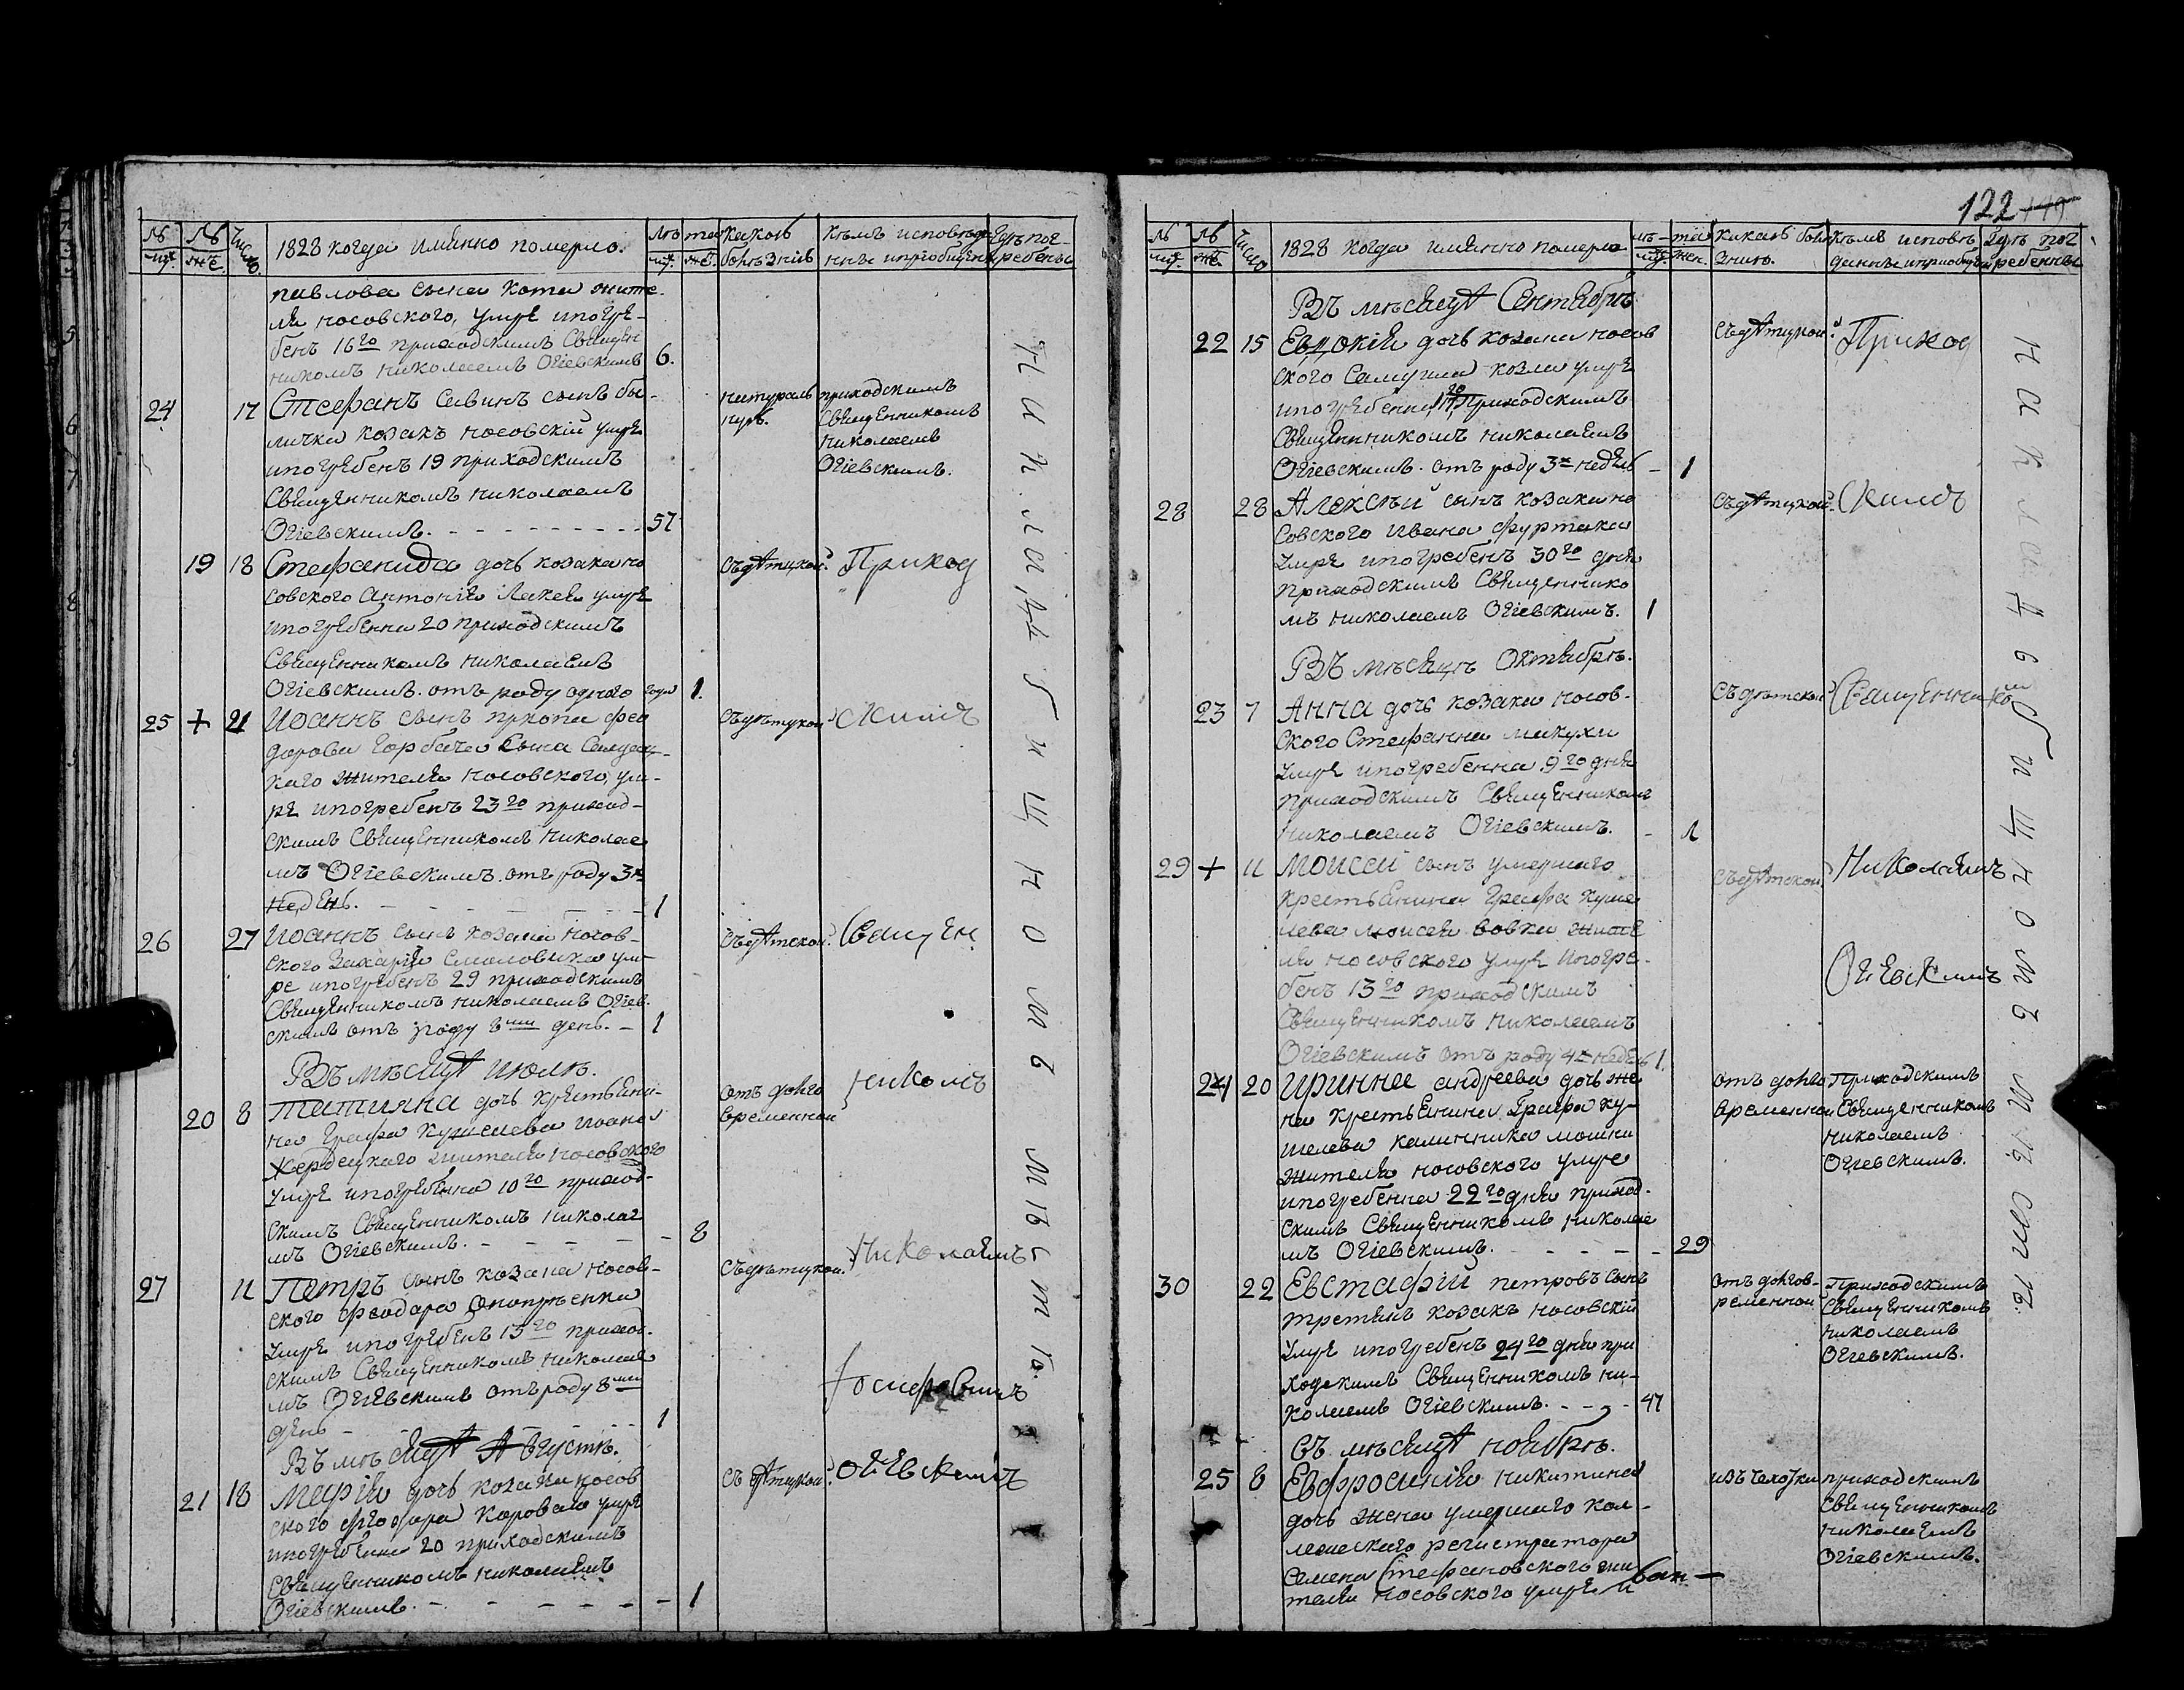 № муж.
№ же.
Число
1828 когда имянно померло.
Лѣ та
муж. же.
какою болѣзнію
кѣмъ исповѣданы и пріобщены
Гдѣ погребены
павлова сына кота жите-
ля носовского, умре и погре-
бенъ 16го приходскимъ Священ
никомъ николаемъ Огіевскимъ 6.
24 17 Стефанъ Савинъ сынъ бы-
личка козакъ носовскій умре
и погребенъ 19 приходскимъ
Священникомъ николаемъ
Огіевскимъ. 57
приходскимъ
Священникомъ
николаемъ
Огіевскимъ.
19 18 Стефанида дочь козака но
совского Антонія Лакея умре
и погребенна 20 приходскимъ
Священникомъ николаемъ
Огіевскимъ. отъ роду одного года 1.
Приход
25 + 21 Иоаннъ сынъ
Горбача сына
жителя носовского, ум-
ре и погребенъ 23го приход-
скимъ Священникомъ николае
мъ Огіевскимъ. отъ роду 3х
недель. 1
скимъ
26 27 Иоаннъ сынъ козака носов-
ского Захарія ум-
ре и погребенъ 29 приходскимъ
Священникомъ николаемъ Огіев-
скимъ отъ роду 8ми день. 1
Священ
Въ мѣсяцѣ июлѣ.
20 8 Татияна дочь крестьяни-
на Графа кушелева иоанна
жителя носовского
умре и погребенна 10го приход-
скимъ Священникомъ никола
мъ Огіевскимъ. 8
отъ долго
временной
27 11 Петръ сынъ козака носов-
ского феодора
умре и погребенъ 13го приход-
скимъ Священникомъ николае
мъ Огіевскимъ отъ роду 8ми
день 1
Николаемъ
Въ мѣсяцѣ Августѣ.
21 18 Марія дочь козака носов
ского феодора Коровая умре
и погребенна 20 приходскимъ
Священникомъ николаемъ
Огіевскимъ. 1
Огіевскимъ
На кладбищномъ мѣстѣ.
122
№ муж.
№ же.
Число
1828 когда имянно померло
лѣ-та
муж. жен.
какою болѣзнію.
Кѣмъ исповѣданны и пріобщены
Гдѣ погребенны
Въ мѣсяцѣ Сентябрѣ
22 15 Евдокія дочь козака носов
ского Самуила козла умре
и погребенна 17го Приходскимъ
Священникомъ николаемъ
Огіевскимъ. отъ роду 3х недель 1
Приход
28 28 Алексѣй сынъ козака но
совского ивана фуртака
умре и погребенъ 30го дня
приходскимъ Священнико
мъ николаемъ Огіевскимъ. 1
Скимъ
Въ мѣсяцѣ Октябрѣ.
23 7 Анна дочь козака носов-
ского Стефанна макухи
умре и погребенна 9го дня
приходскимъ Священникомъ
николаемъ Огіевскимъ. 1
Съ дѣтской
Священникомъ
29 + 11 Моисей сынъ умершаго
крестьянина Графа куше
лева моисея вовка жите
ля носовского умре и погре-
бенъ 13го приходскимъ
Священникомъ николаемъ
Огіевскимъ отъ роду 4х недель 1.
Николаемъ
Огіевскимъ
24 20 Иринна андреева дочь же
на крестьянина Графа ку-
шелева калинника мошни
жителя носовского умре
и погребенна 22го дня приход-
скимъ Священникомъ николае
мъ Огіевскимъ. 29
отъ долго
временной
Приходскимъ
Священникомъ
николаемъ
Огіевскимъ.
30 22 Евстафій петровъ сынъ
третякъ козакъ носовскій
умре и погребенъ 24го дня при
ходскимъ Священникомъ ни-
колаемъ Огіевскимъ. 47
отъ долгов-
ременной
Приходскимъ
Священникомъ
николаемъ
Огіевскимъ.
Въ мѣсяцѣ ноябрѣ.
25 8 Евфросинія никитина
дочь жена умершаго кол-
лежскаго регистратора
Семена Стефановского жи
теля носовского умре и
изъ чахотки
приходскимъ
Священникомъ
николаемъ
Огіевскимъ.
На кладбищномъ мѣстѣ.